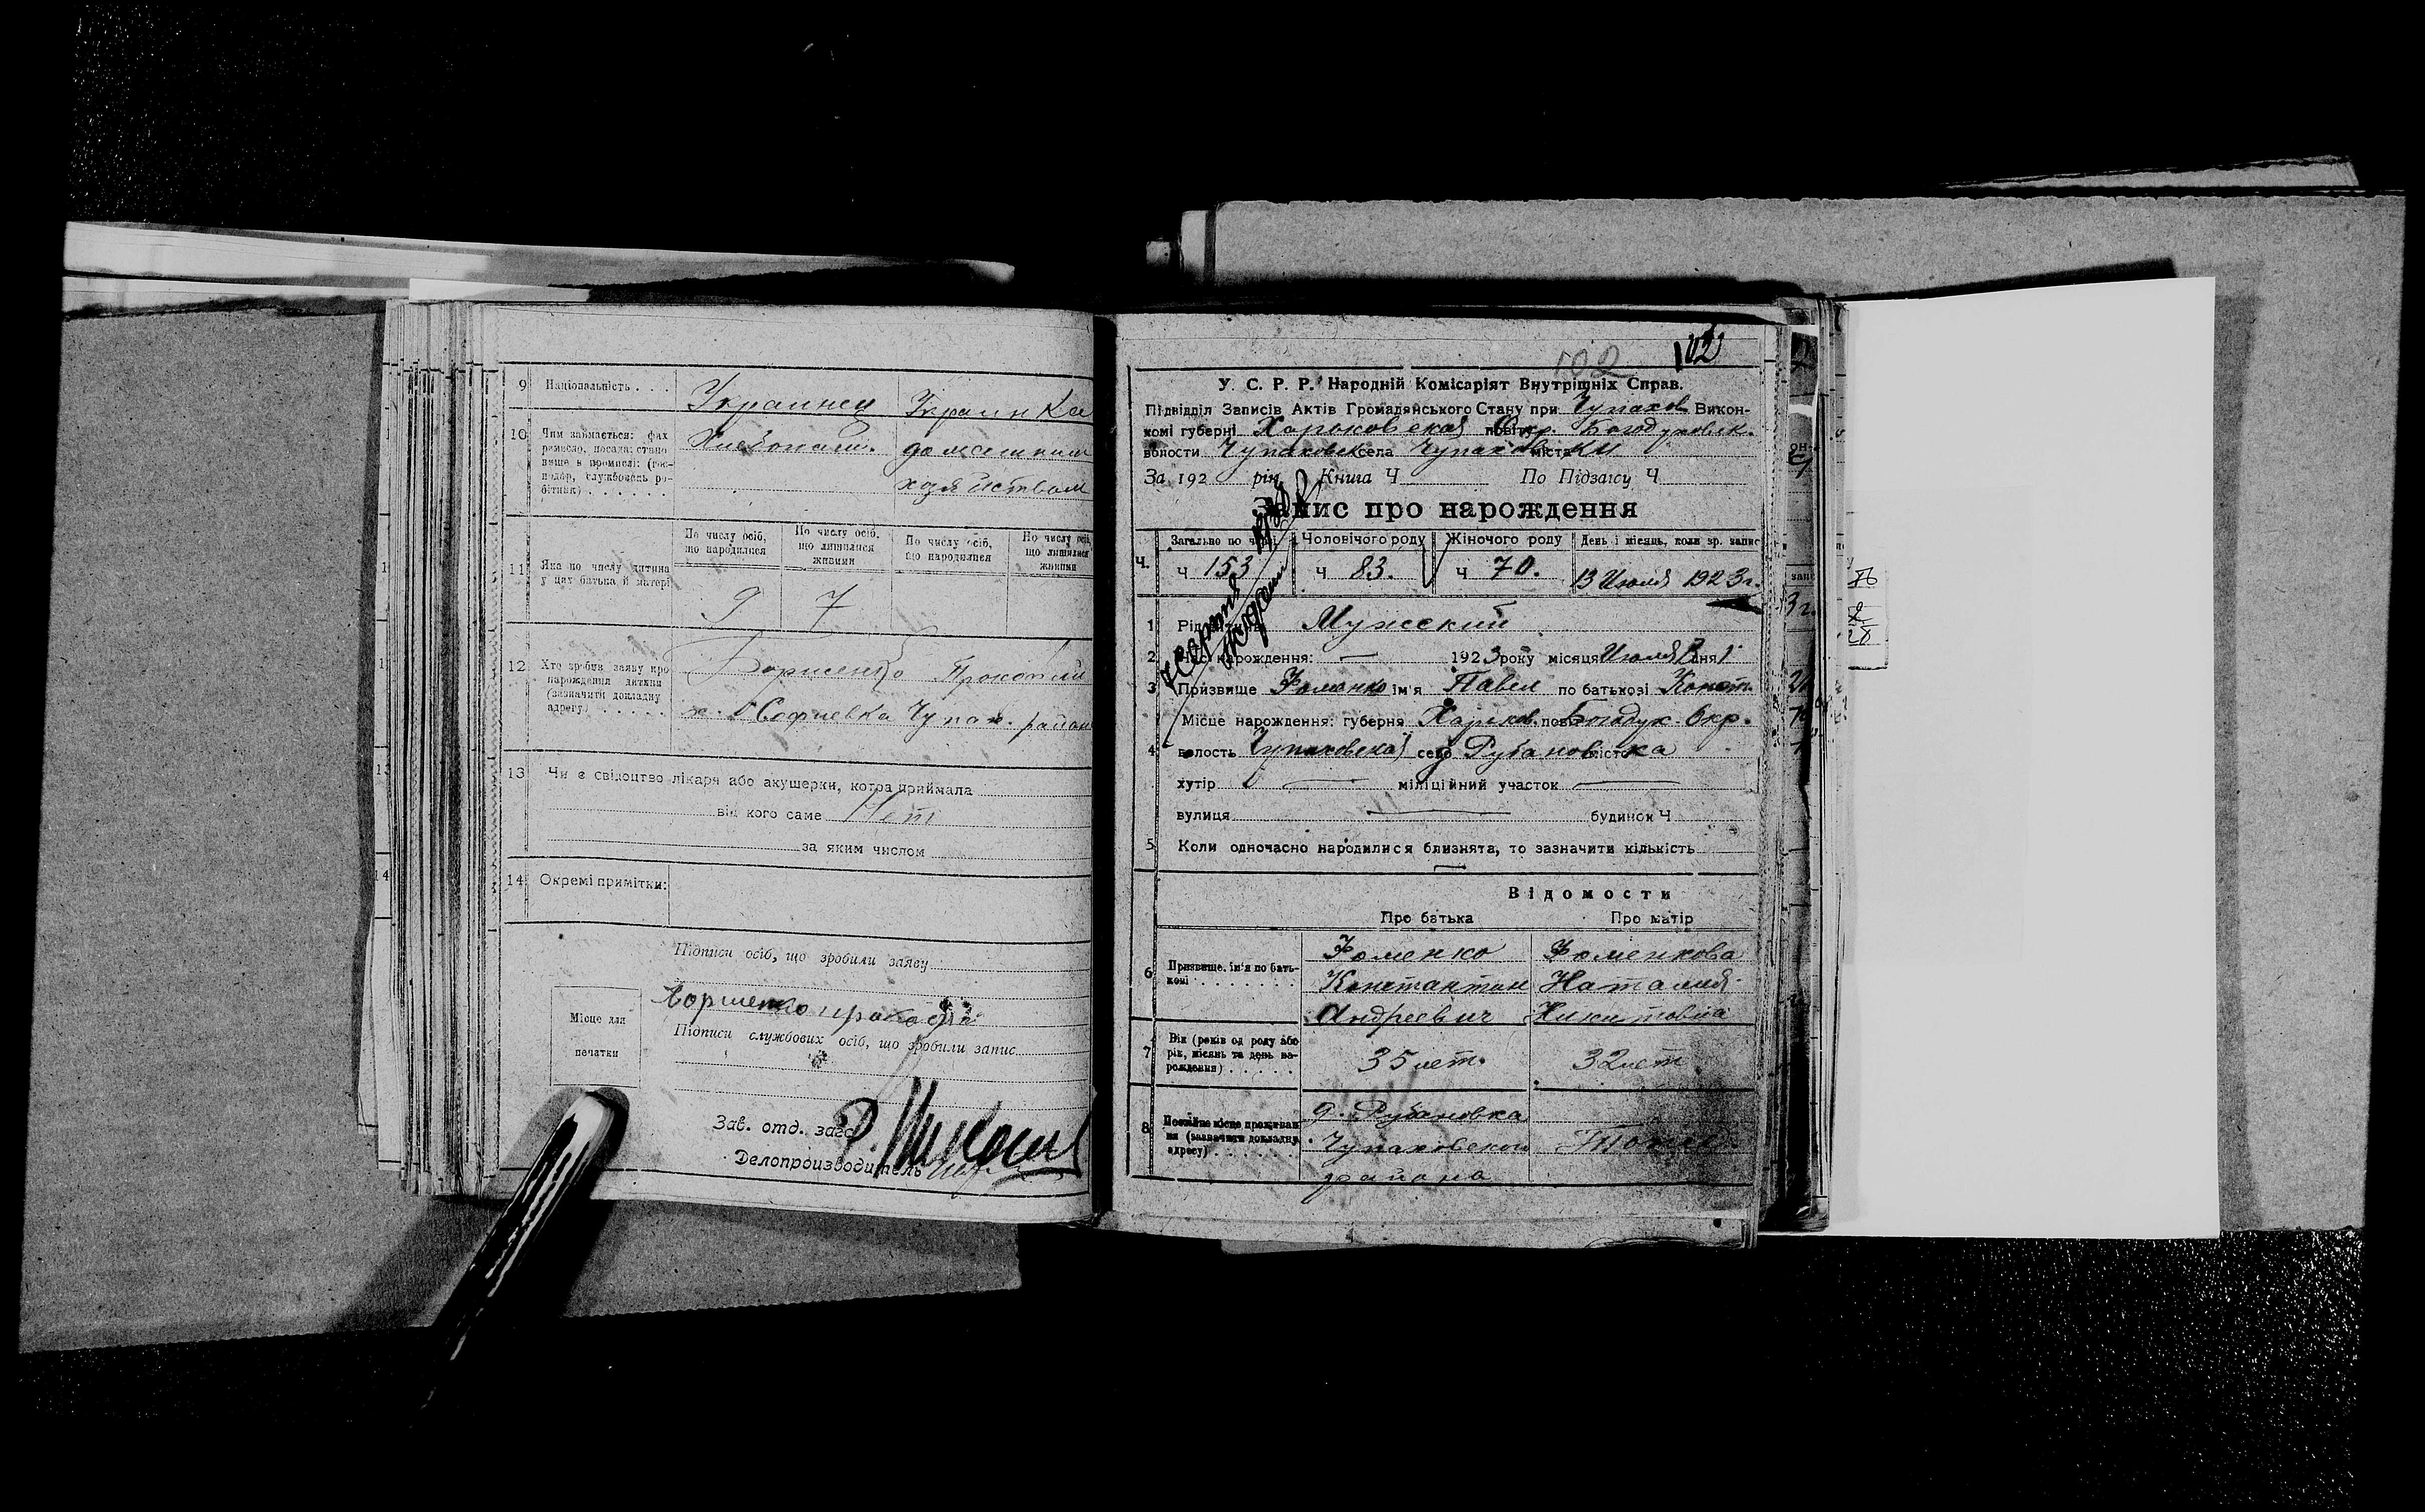 9 Національність . . . Украинец Украинка
10 Чим займається: фах Хлебопаш. домашним
ремесло, посада: стано
вище в промислі: (гос-
подар, службовець ро- хозяйством
бітник) . . . . . .
11 Яка по числу дитина
у цих батька й матері
По числу осіб,
що народилися
По числу осіб,
що лишилися
живими
По числу осіб,
що народилися
По числу осіб,
що лишилися
живими
9 7
12 Хто зробив заяву про Борисенко Прокофий
нарождення дитини
(зазначити докладну х. Софиевка Чупах. район
адресу) . . . . .
13 Чи є свідоцтво лікаря або акушерки, котра приймала
від кого саме Нет
за яким числом
14 Окремі примітки:
Підписи осіб, що зробили заяву
Місце для
печатки
Підписи службових осіб, що зробили запис
Зав. отд. загс
Делопроизводитель
102 102
У. С. Р. Р. Народній Комісаріят Внутрішніх Справ.
Підвідділ Записів Актів Громадянського Стану при Чупахов Викон-
комі губерні Харьковская повіт Окр. Богодуховск.
волости Чупаховск села Чупаховки міста
За 192 рік Книга Ч По Підзагсу Ч
Запис про нарождення
Ч. Загально по черзі Чоловічого роду Жіночого роду День і місяць, коли зр. запис
Ч 153 Ч 83. Ч 70. 13 Июля 1923 г.
1 Рід дитини Мужский
2 Час нарождення: — 1923 року місяця Июля дня
3 Призвище Фоменко ім'я Павел по батькові Конст.
4 Місце нарождення: губерня Харьков. повіт Богодух. Окр.
волость Чупаховская село Рубановка місто
хутір — міліційний участок —
вулиця — будинок Ч
5 Коли одночасно народилися близнята, то зазначити кількість
—
Відомости
Про батька Про матір
6 Призвище, ім'я по бать-
кові . . . . . . . .
Фоменко Фоменкова
Константин Наталия
Андреевич Никитовна
7 Вік (років од роду або
рік, місяць та день на-
рождення) . . . . .
35 лет. 32 лет
8 Постійне місце проживан
ня (зазначити докладну
адресу) . . . . . .
д. Рубановка
Чупаховского Тоже
района